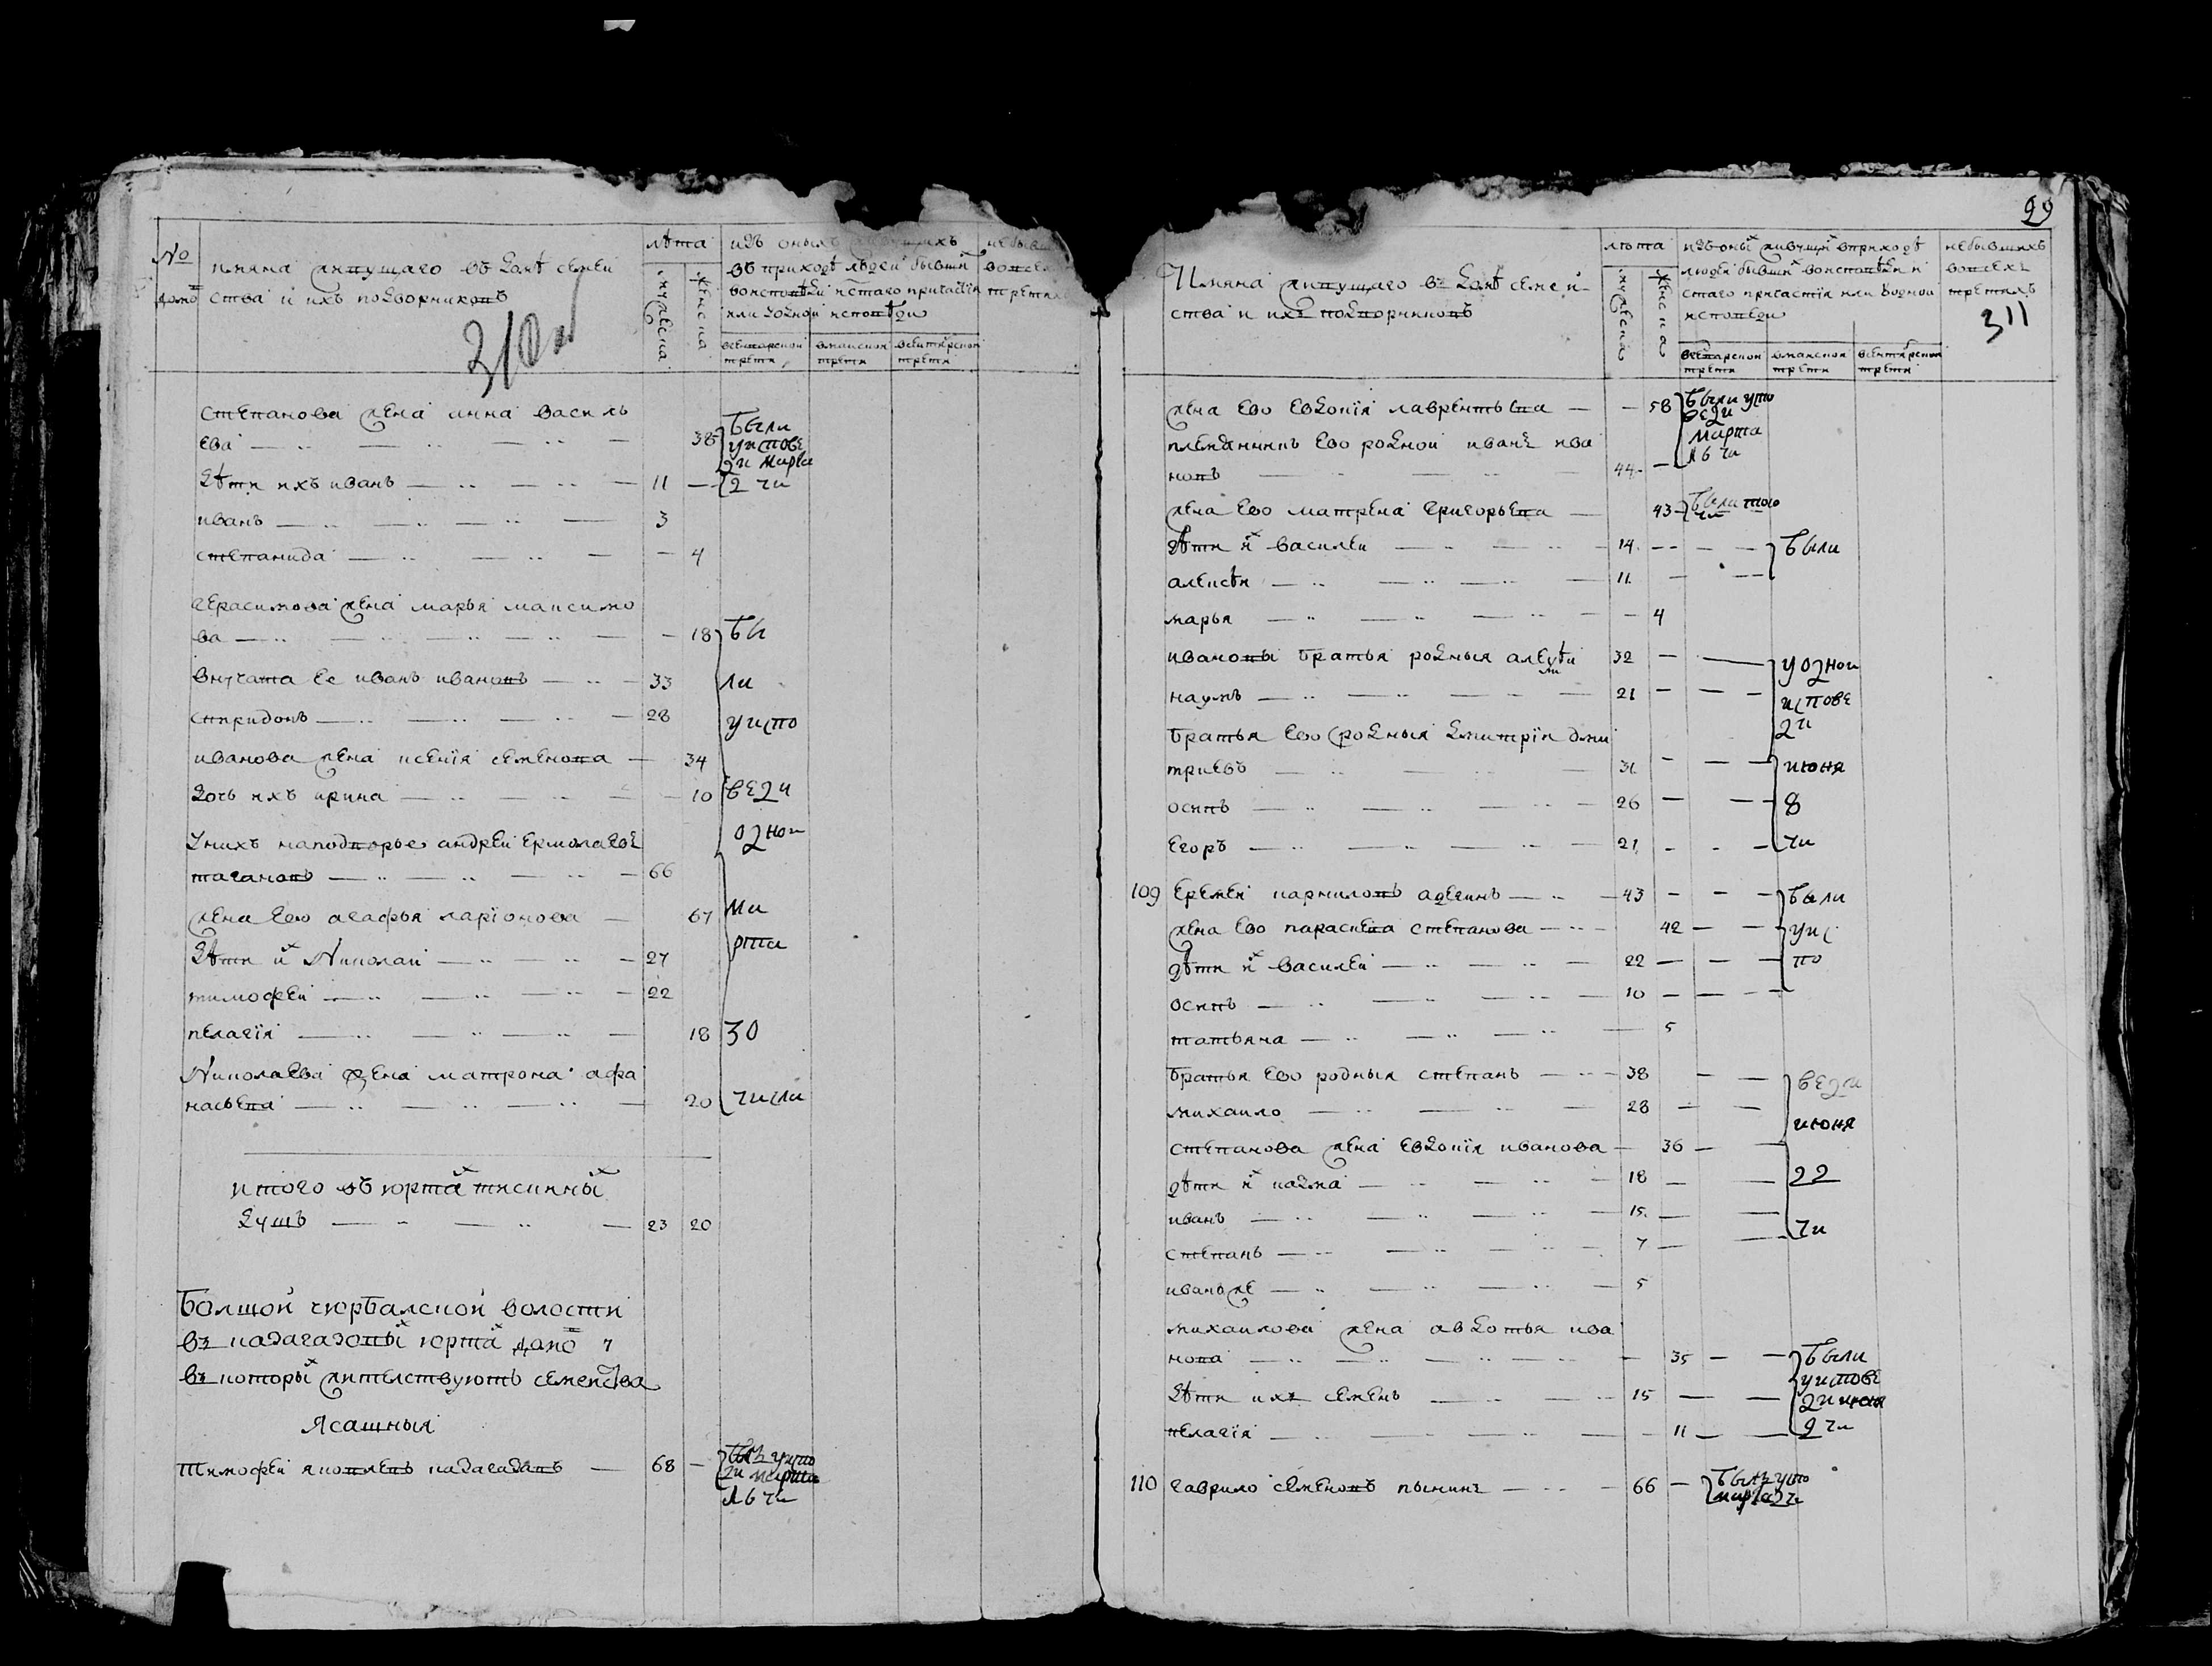 № домо
имяна живущаго въ домѣ семеи
ства и ихъ подворниковъ
310
лѣта
мужеска
женска
изъ оныхъ живущихъ
въ приходѣ людеи бывши
воисповѣди и стаго причастїя
или үодной исповѣди
всегенварской трети
вмаиской трети
всентябрской трети
степанова жена анна василь
ева 38
Были
уисповѣ
ди марта
2 чи
дѣти ихъ иванъ 11
иванъ 3
степанида 4
герасимова жена марья максимо
ва 18
бы
внучата ее иванъ ивановъ 33
ли
спиридонъ 28
уиспо
иванова жена ксенїя семенова 34
дочь ихъ ирина 10
веди
однои
унихъ наподворье андреи ермолаевъ
тагановъ 66
жена ево агафья ларїонова 67
ма
дѣти их Николаи 27
рта
тимофеи 22
пелагїя 18
30
Николаева жена матрона афа
насьева 20
числа
итого въ юртах тисинных
душъ 23 20
Болшой чюрбалской волости
въ казагазовых юртах домо 7
въ которых жителствуютъ семейства
Ясашныя
Тимофеи яковлевъ казагазавъ 68
былъ уиспо
ди марта
16 чи
99
Имяна живущаго въ домѣ семеи
ства и ихъ подворниковъ
лѣта
мужеска
женска
изъ оных живущих вприходѣ
людеи бывши воисповѣди и
стаго причастїя или үодной
исповеди
всегенварской трети
вмаиской трети
всентябрской трети
небывшихъ
вовсехъ
третяхъ
311
жена ево евдокїя лаврентьева 58
Были уиспо
веди
марта
16 чи
племянникъ ево родной иванъ ива
новъ 44
жена ево матрена григорьева 43
были того чи
дѣти их василеи 14
были
алексѣи 11
марья 4
ивановы братья родныя алексѣи 32
уоднои
наумъ 21
исповѣ
ди
братья ево родныя дмитрїи дми
триевъ 31
июня
осипъ 26
8
егоръ 21
чи
109 еремеи карниловъ адегинъ 43
были
жена ево параскева степанова 42
уис
дѣти их василеи 22
по
осипъ 10
татьяна 5
братья ево родныя степанъ 38
веди
михаило 28
июня
степанова жена евдокїя иванова 36
дѣти их казма 18
22
иванъ 15
чи
степанъ 7
иванъ же 5
михаилова жена авдотья ива
нова 35
были
уисповѣ
ди июня
9 чи
дѣти ихъ семенъ 15
пелагїя 11
110 гаврило семеновъ пынинъ 66
былъ уиспо
марта 2 чи